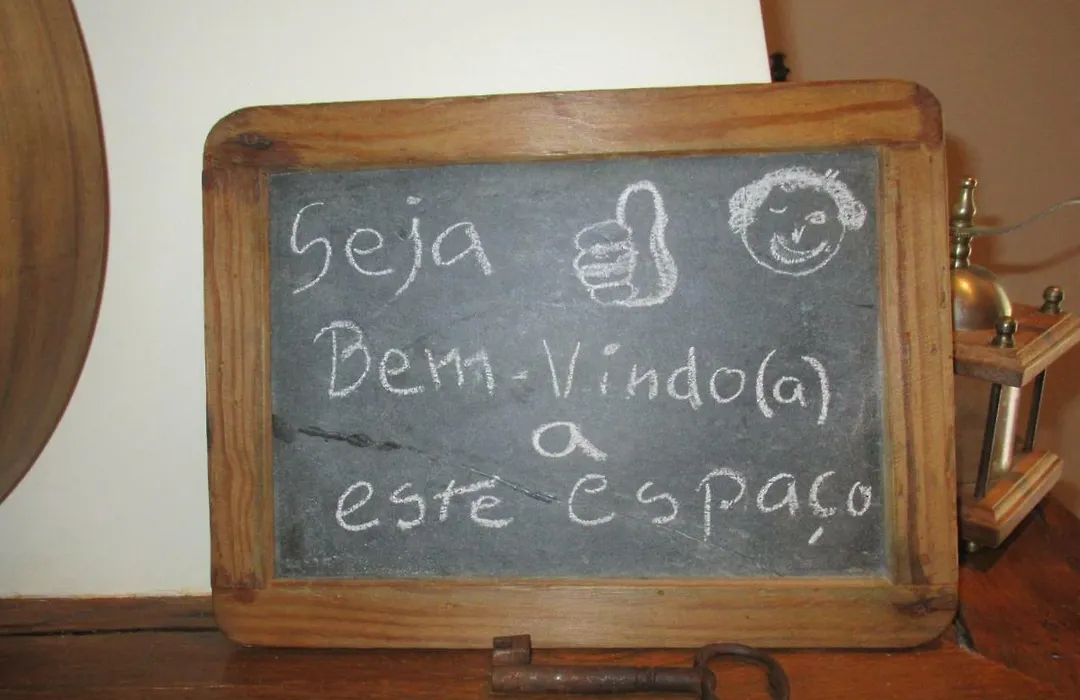 Seja
Bem-Vindo(a)
a
este espaço